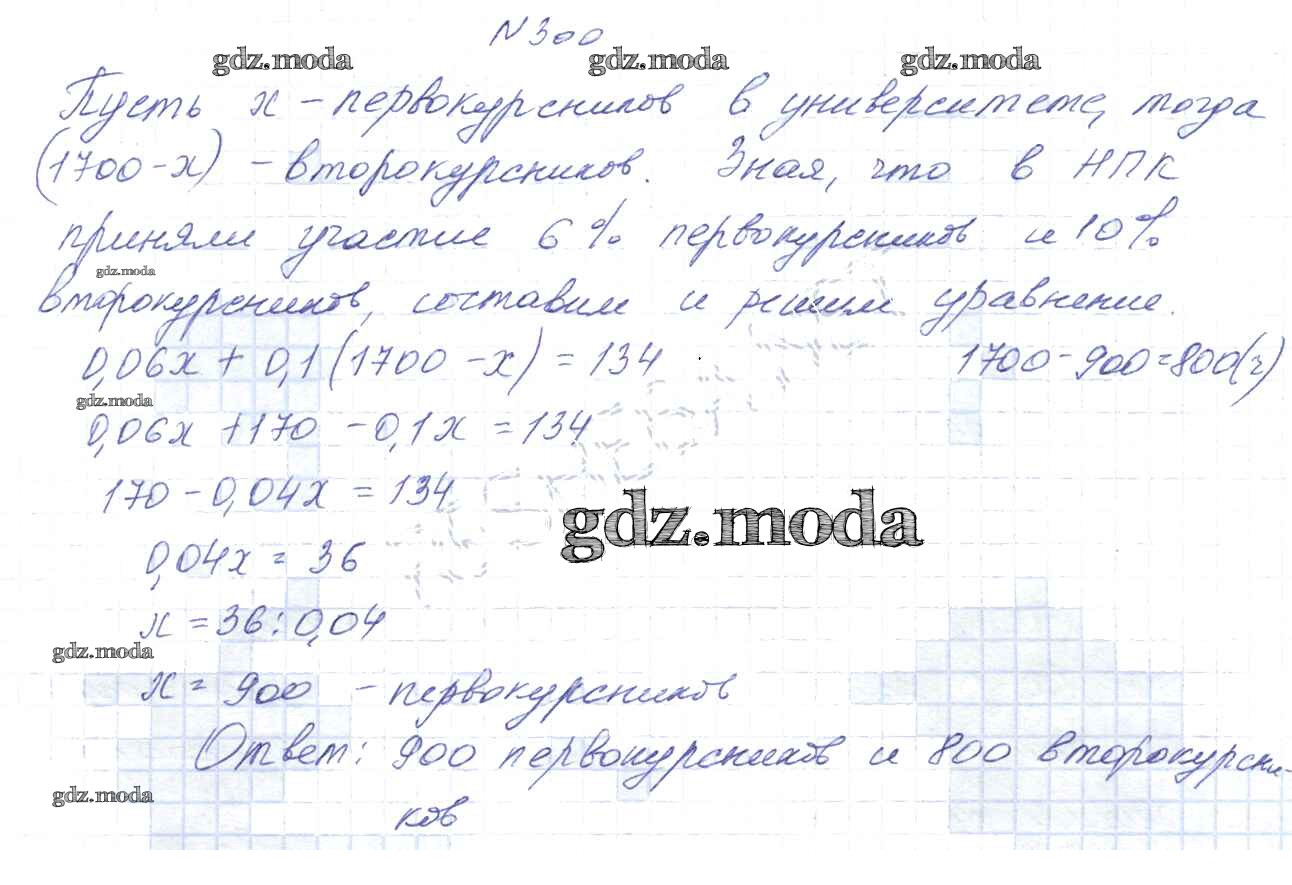 N 300
gdz.moda gdz.moda gdz.moda
Пусть x – первокурсников в университете, тогда
(1700 - x) - второкурсников. Зная, что в НПК
приняли участие 6% первокурсников и 10%
gdz.moda
второкурсников, составим и решим уравнение.
0,06x + 0,1(1700 - x) = 134 1700 - 900 = 800(ч)
gdz.moda
0,06x + 170 - 0,1x = 134
170 - 0,04x = 134
gdz.moda
0,04x = 36
x = 36 : 0,04
gdz.moda
x = 900 - первокурсников
Ответ: 900 первокурсников и 800 второкурсни-
gdz.moda
ков